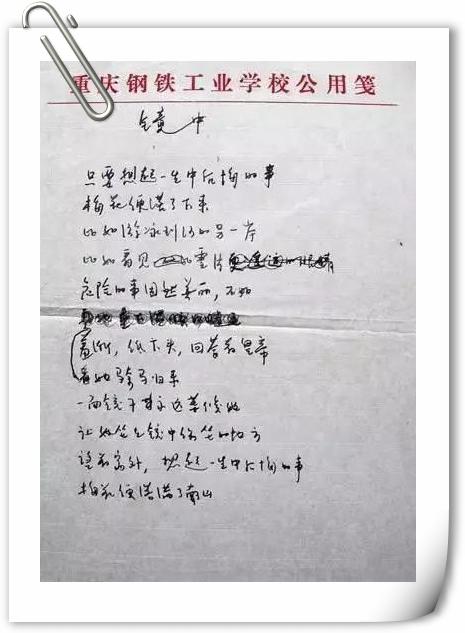 重庆钢铁工业学校公用笺
镜中
只要想起一生中后悔的事
梅花便落了下来
比如游泳到河的另一岸
比如看见雪片
危险的事固然美丽，不如
羞惭，低下头，回答着皇帝
看她骑马归来
一面镜子永远等候她
让她坐到镜中常坐的地方
望着窗外，想起一生中后悔的事
梅花便落满了南山